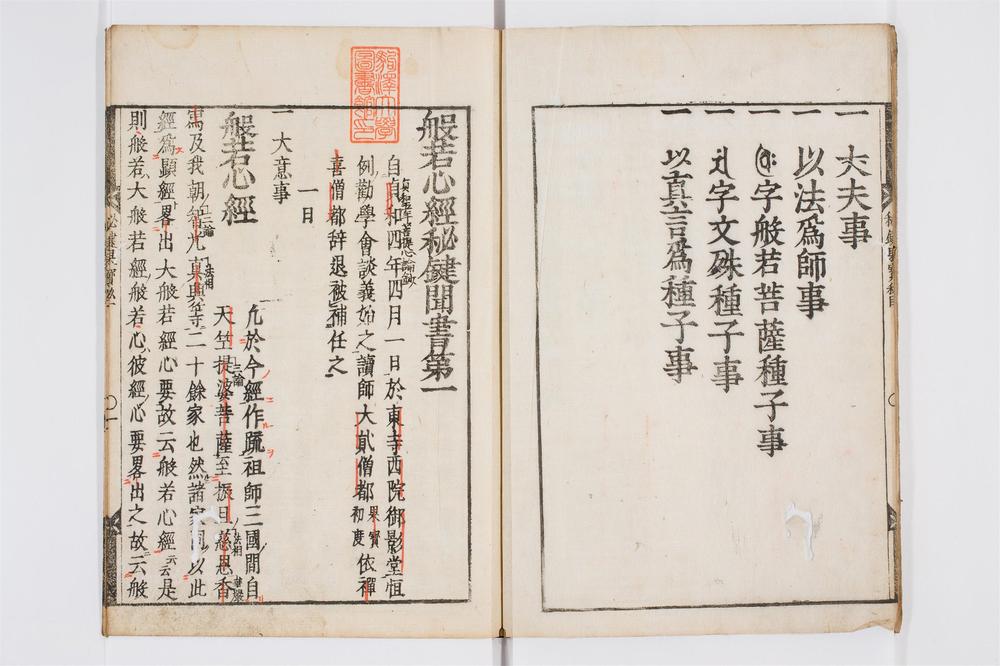 一 大夫事
一 以法爲師事
一 字般若菩薩種子事
一 字文殊種子事
一 以真言爲種子事
般若心經秘鍵聞書第一
自貞和四年四月一日於東寺西院御影堂恒
例勸學會談義始之讀師大貳僧都果寳初度依禪
喜僧都辞退被補任之
一日
一 大意事
般若心經
凢於今經作䟽祖師三國間自
天竺提婆菩薩至振旦慈恩香
及我朝智光真興等二十餘家也然諸家同以此
經爲顯經畧出大般若經心要故云般若心經云云是
則般若大般若經般若心彼經心要畧出之故云般
駒澤大學圖書館印